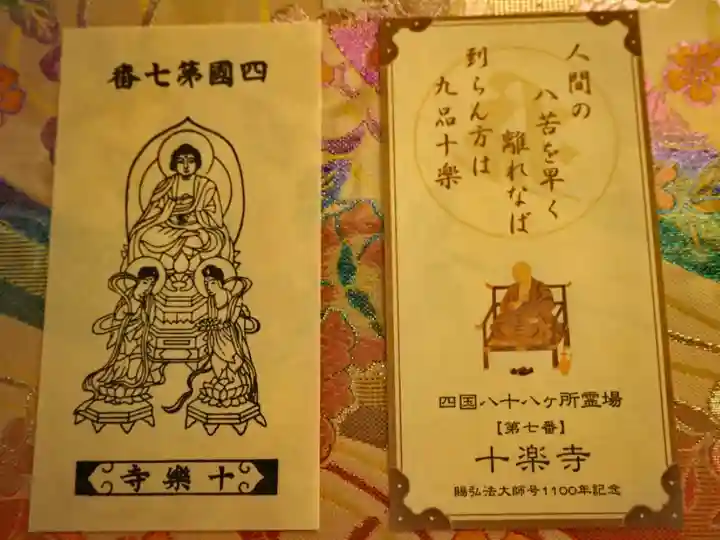 四國第七番
十樂寺
人間の
八苦を早く
離れなば
到らん方は
九品十楽
四国八十八ヶ所霊場
【第七番】
十楽寺
賜弘法大師号1100年記念